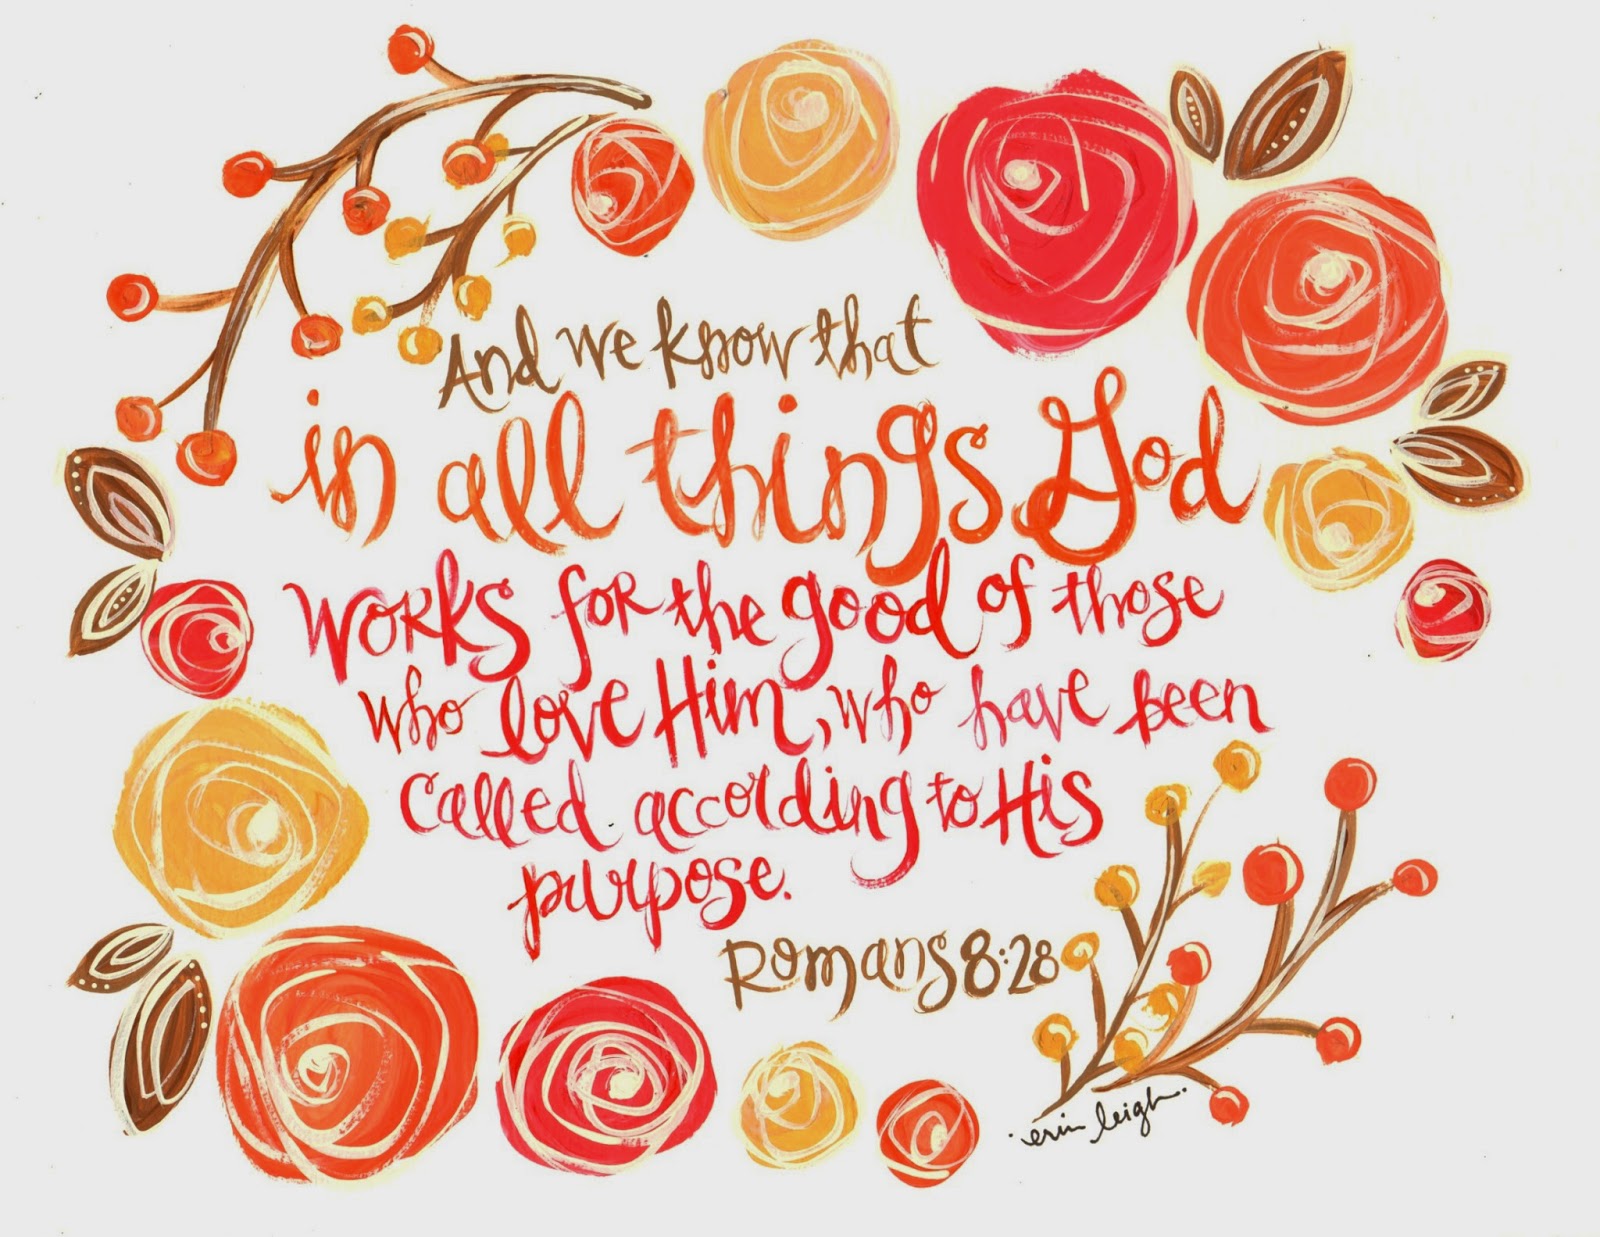 And we know that
in all things God
works for the good of those
who love Him, who have been
called according to His
purpose.
Romans 8:28
erin leigh.